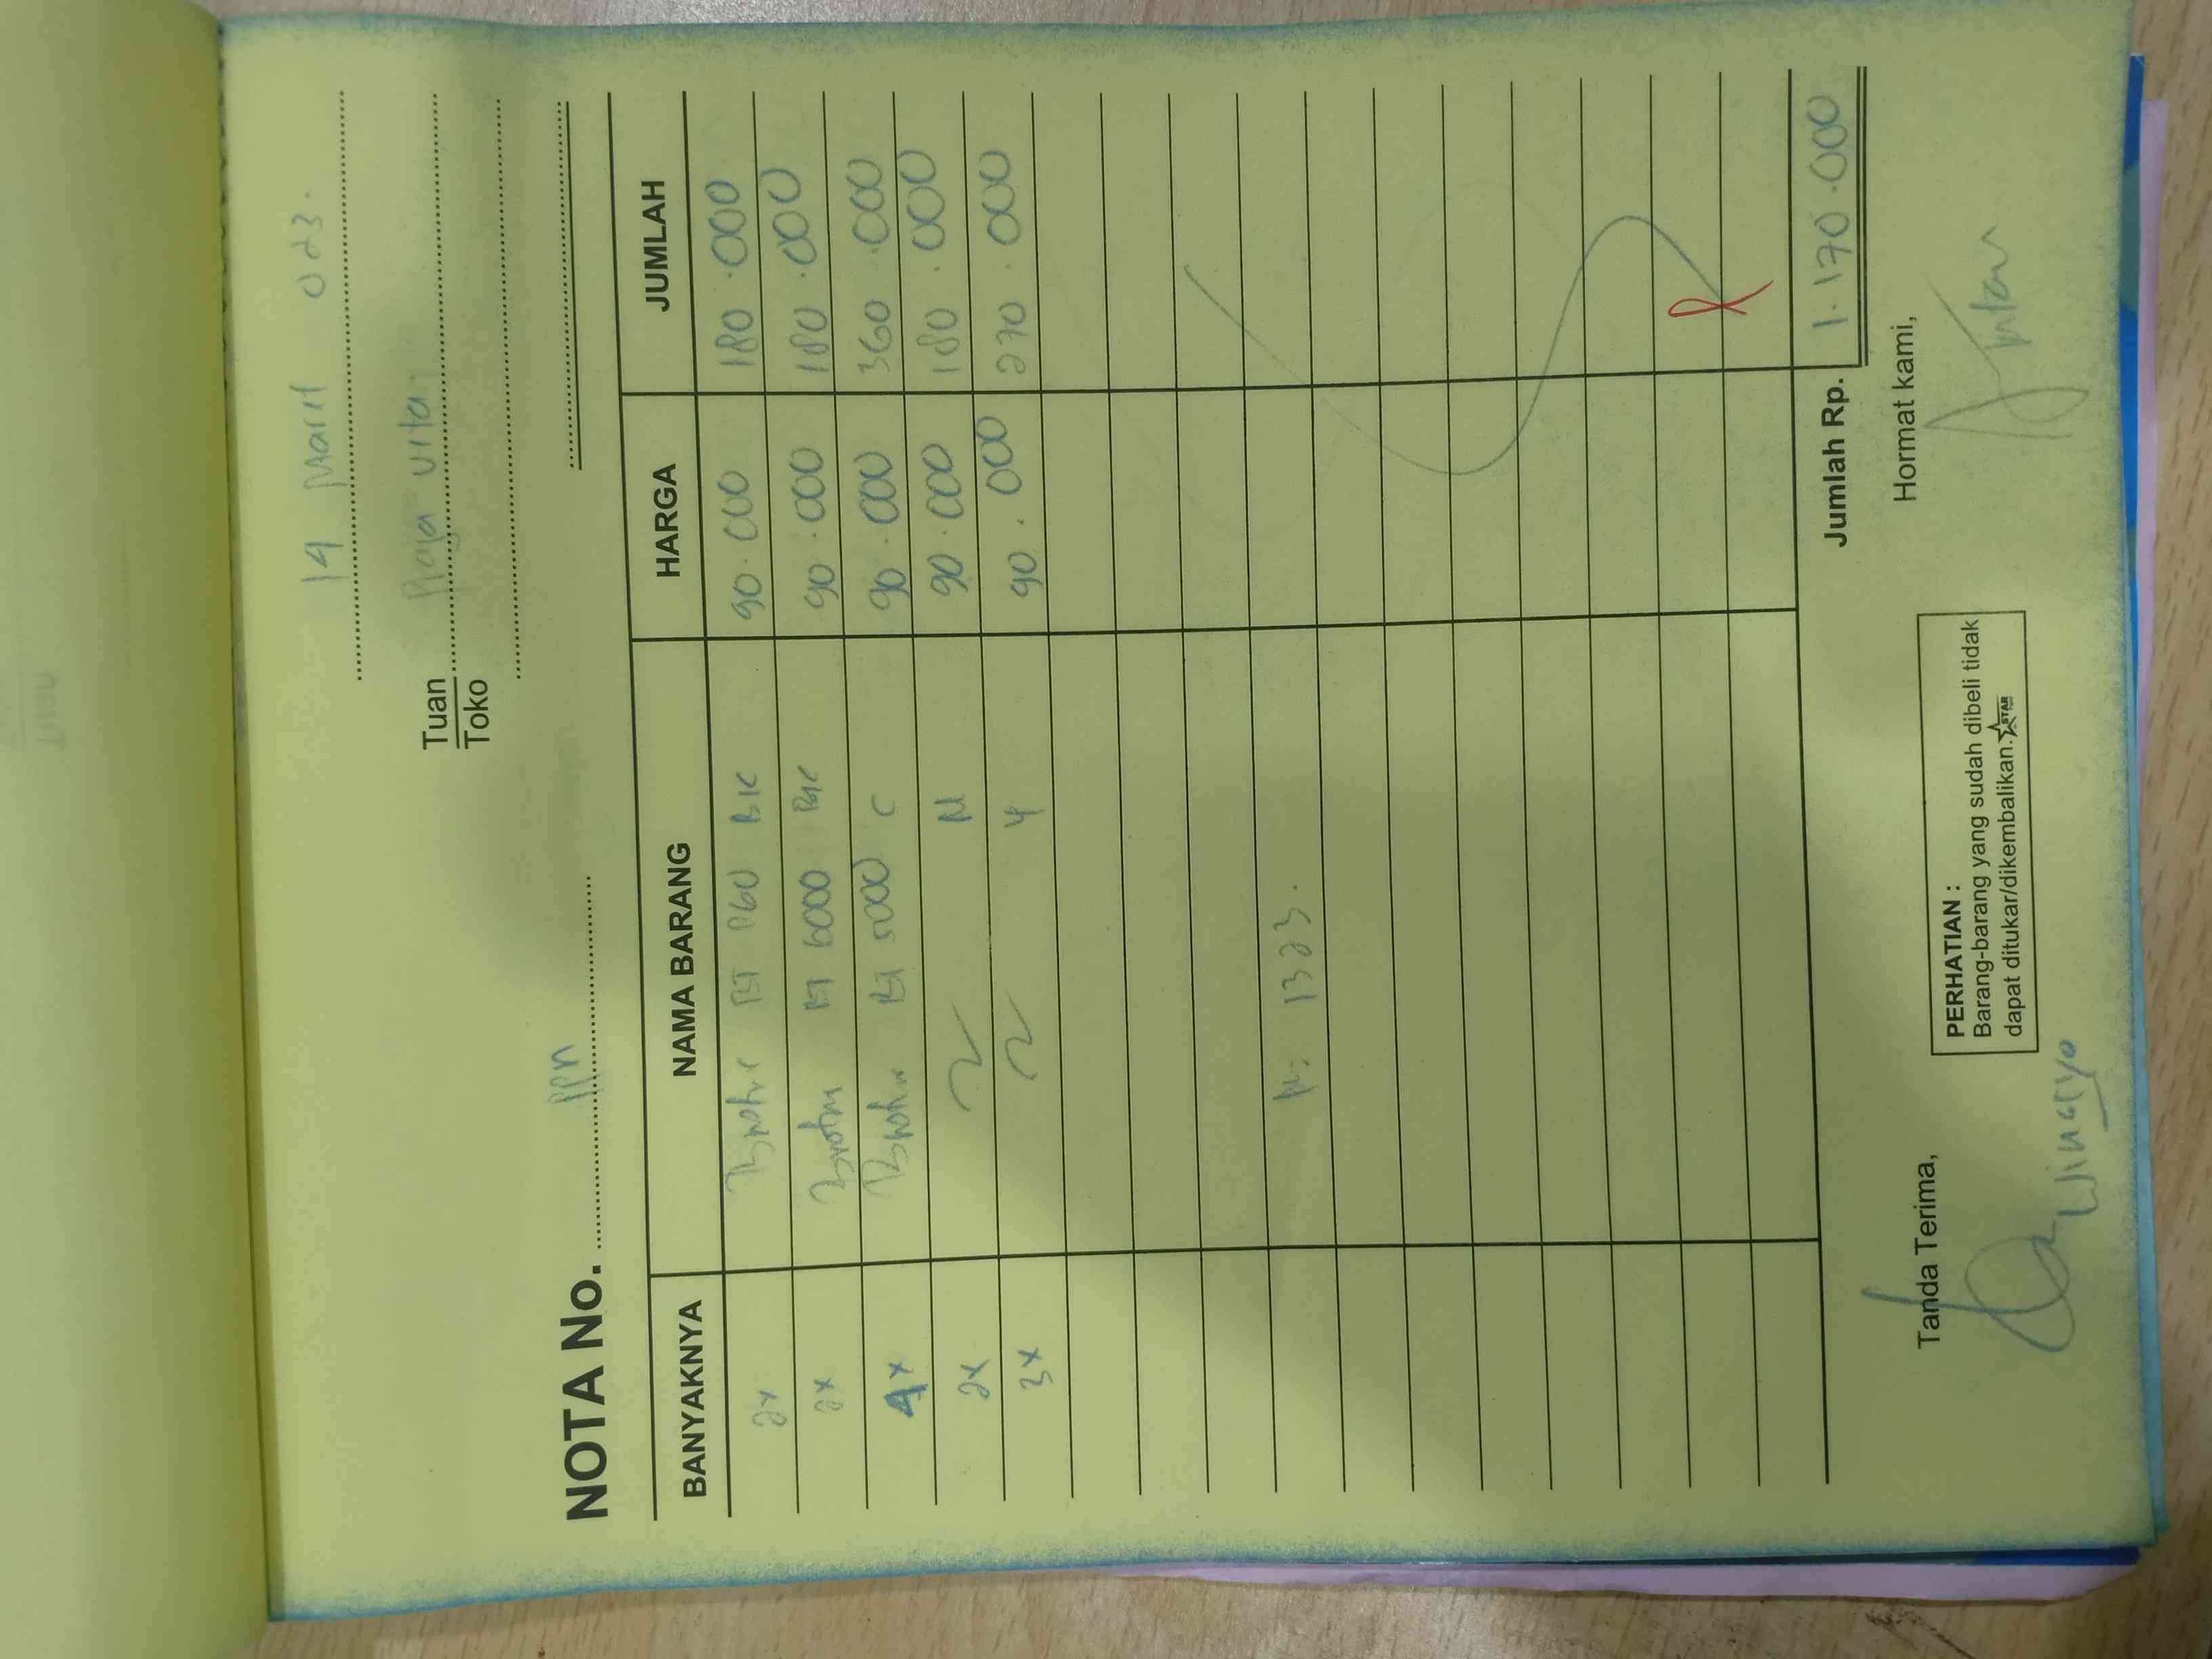 14 Maret 023.
Tuan
Toko
NOTA No. PPN
BANYAKNYA NAMA BARANG HARGA JUMLAH
2x Brother BT D60 BK 90.000 180.000
2x Brother BT 6000 BK 90.000 180.000
4x Brother BT 5000 C 90.000 360.000
2x M 90.000 180.000
3x Y 90.000 270.000
1323.
Jumlah Rp. 1.170.000
Tanda Terima,
PERHATIAN :
Barang-barang yang sudah dibeli tidak
dapat ditukar/dikembalikan.
STAR
Hormat kami,